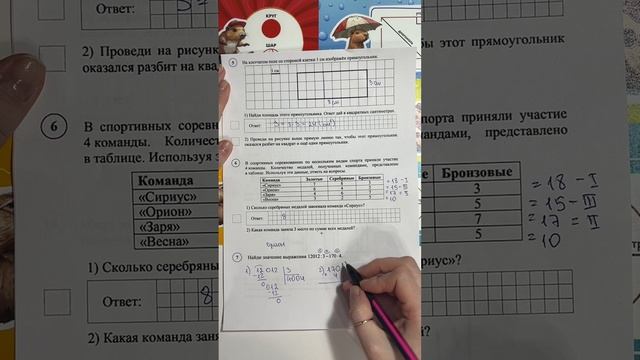 Ответ:
2) Проведи на рисунке
оказался разбит на ква
6
В спортивных соревно
4 команды. Количество
в таблице. Используя э
Команда
«Сириус»
«Орион»
«Заря»
«Весна»
1) Сколько серебряных
Ответ: 8
2) Какая команда зан
КРУГ
ШАР
5
На клеточном поле со стороной клетки 1 см изображён прямоугольник.
1 см
3 см
1) Найди площадь этого прямоугольника. Ответ дай в квадратных сантиметрах.
Ответ:
2) Проведи на рисунке выше прямую линию так, чтобы этот прямоугольник
оказался разбит на квадрат и ещё один прямоугольник.
6
В спортивных соревнованиях по нескольким видам спорта приняли участие
4 команды. Количество медалей, полученных командами, представлено
в таблице. Используя эти данные, ответь на вопросы.
Команда Золотые Серебряные Бронзовые
«Сириус» = 18 - I
«Орион» = 15 - III
«Заря» = 17 = II
«Весна» = 10
1) Сколько серебряных медалей завоевала команда «Сириус»?
Ответ: 8
2) Какая команда заняла 3 место по сумме всех медалей?
Орион
7
Найди значение выражения 12012 : 3 – 170 · 4.
1) 12012 3
12 4004
012
12
0
2) 170
4
бы этот прямоугольник
рта приняли участие
андами, представлено
Бронзовые
3 = 18 - I
5 = 15 - III
7 = 17 = II
5 = 10
иус»?